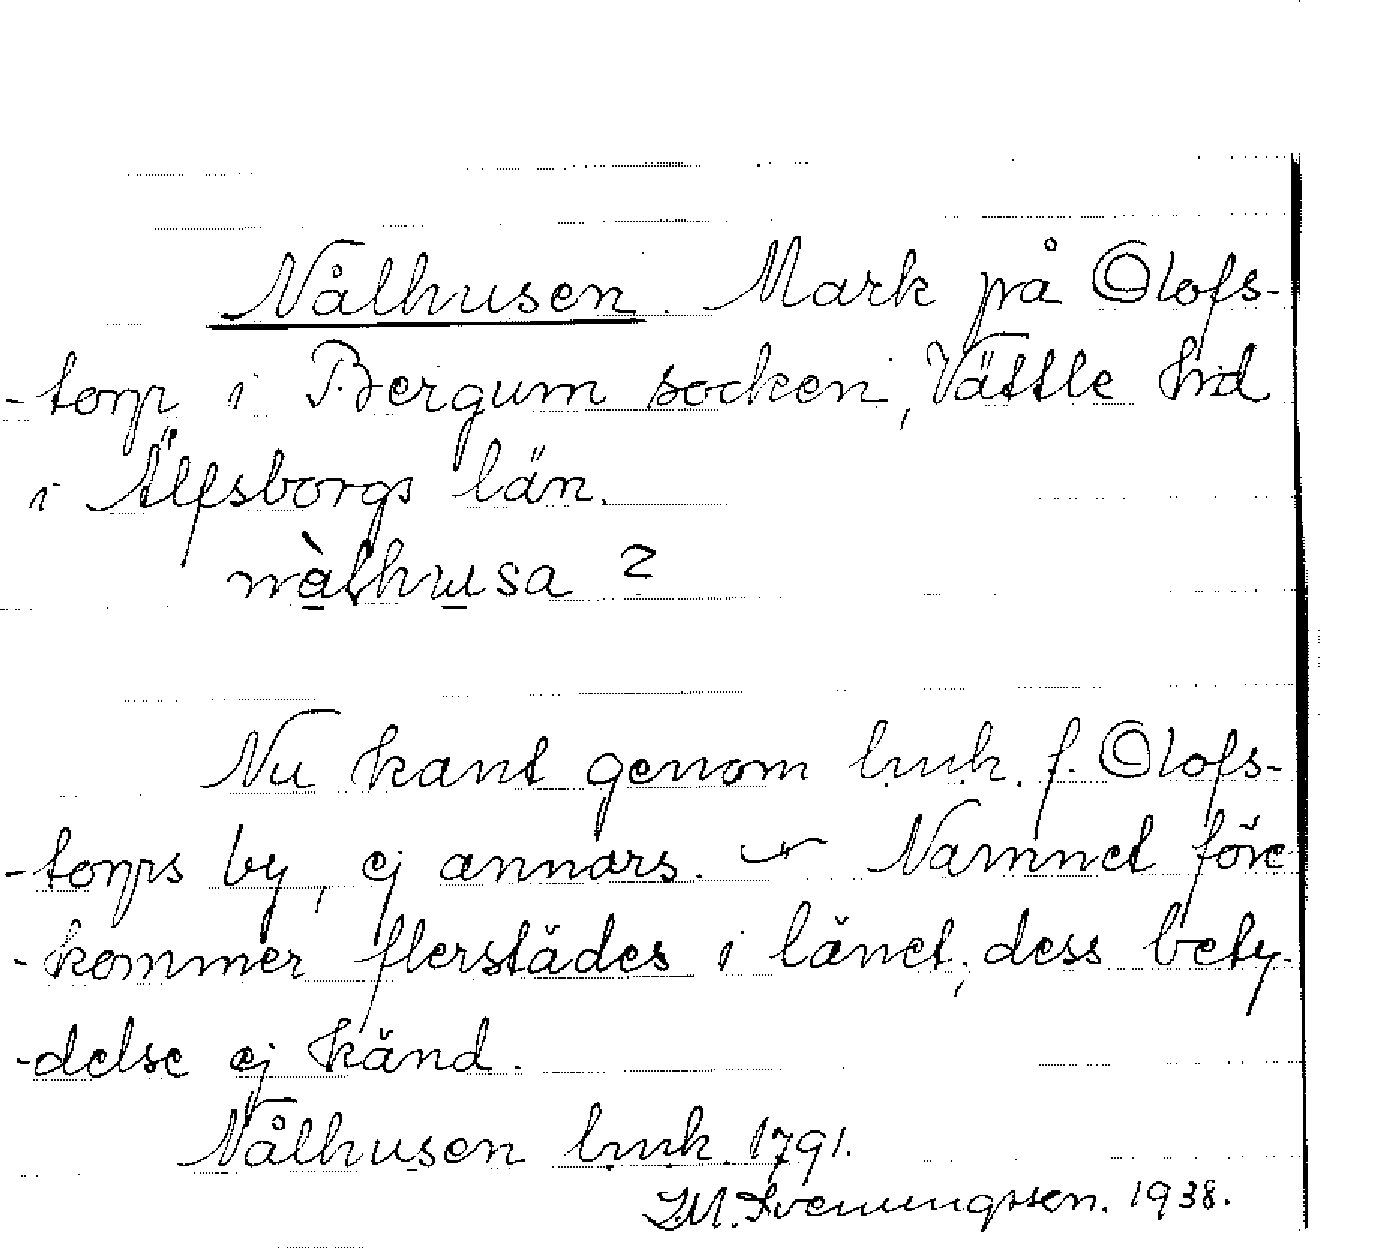 Nålhusen. Mark på Olofs-
-torp i Bergum socken, Vättle hrd
i Älfsborgs län.
nàlhusa 2
Nu kant genom lmk. f. Olofs-
-torps by, ej annars. Namnet före
-kommer flerstädes i länet, dess bety-
-delse ej känd.
Nålhusen lmk. 1791.
Svenungsson. 1938.